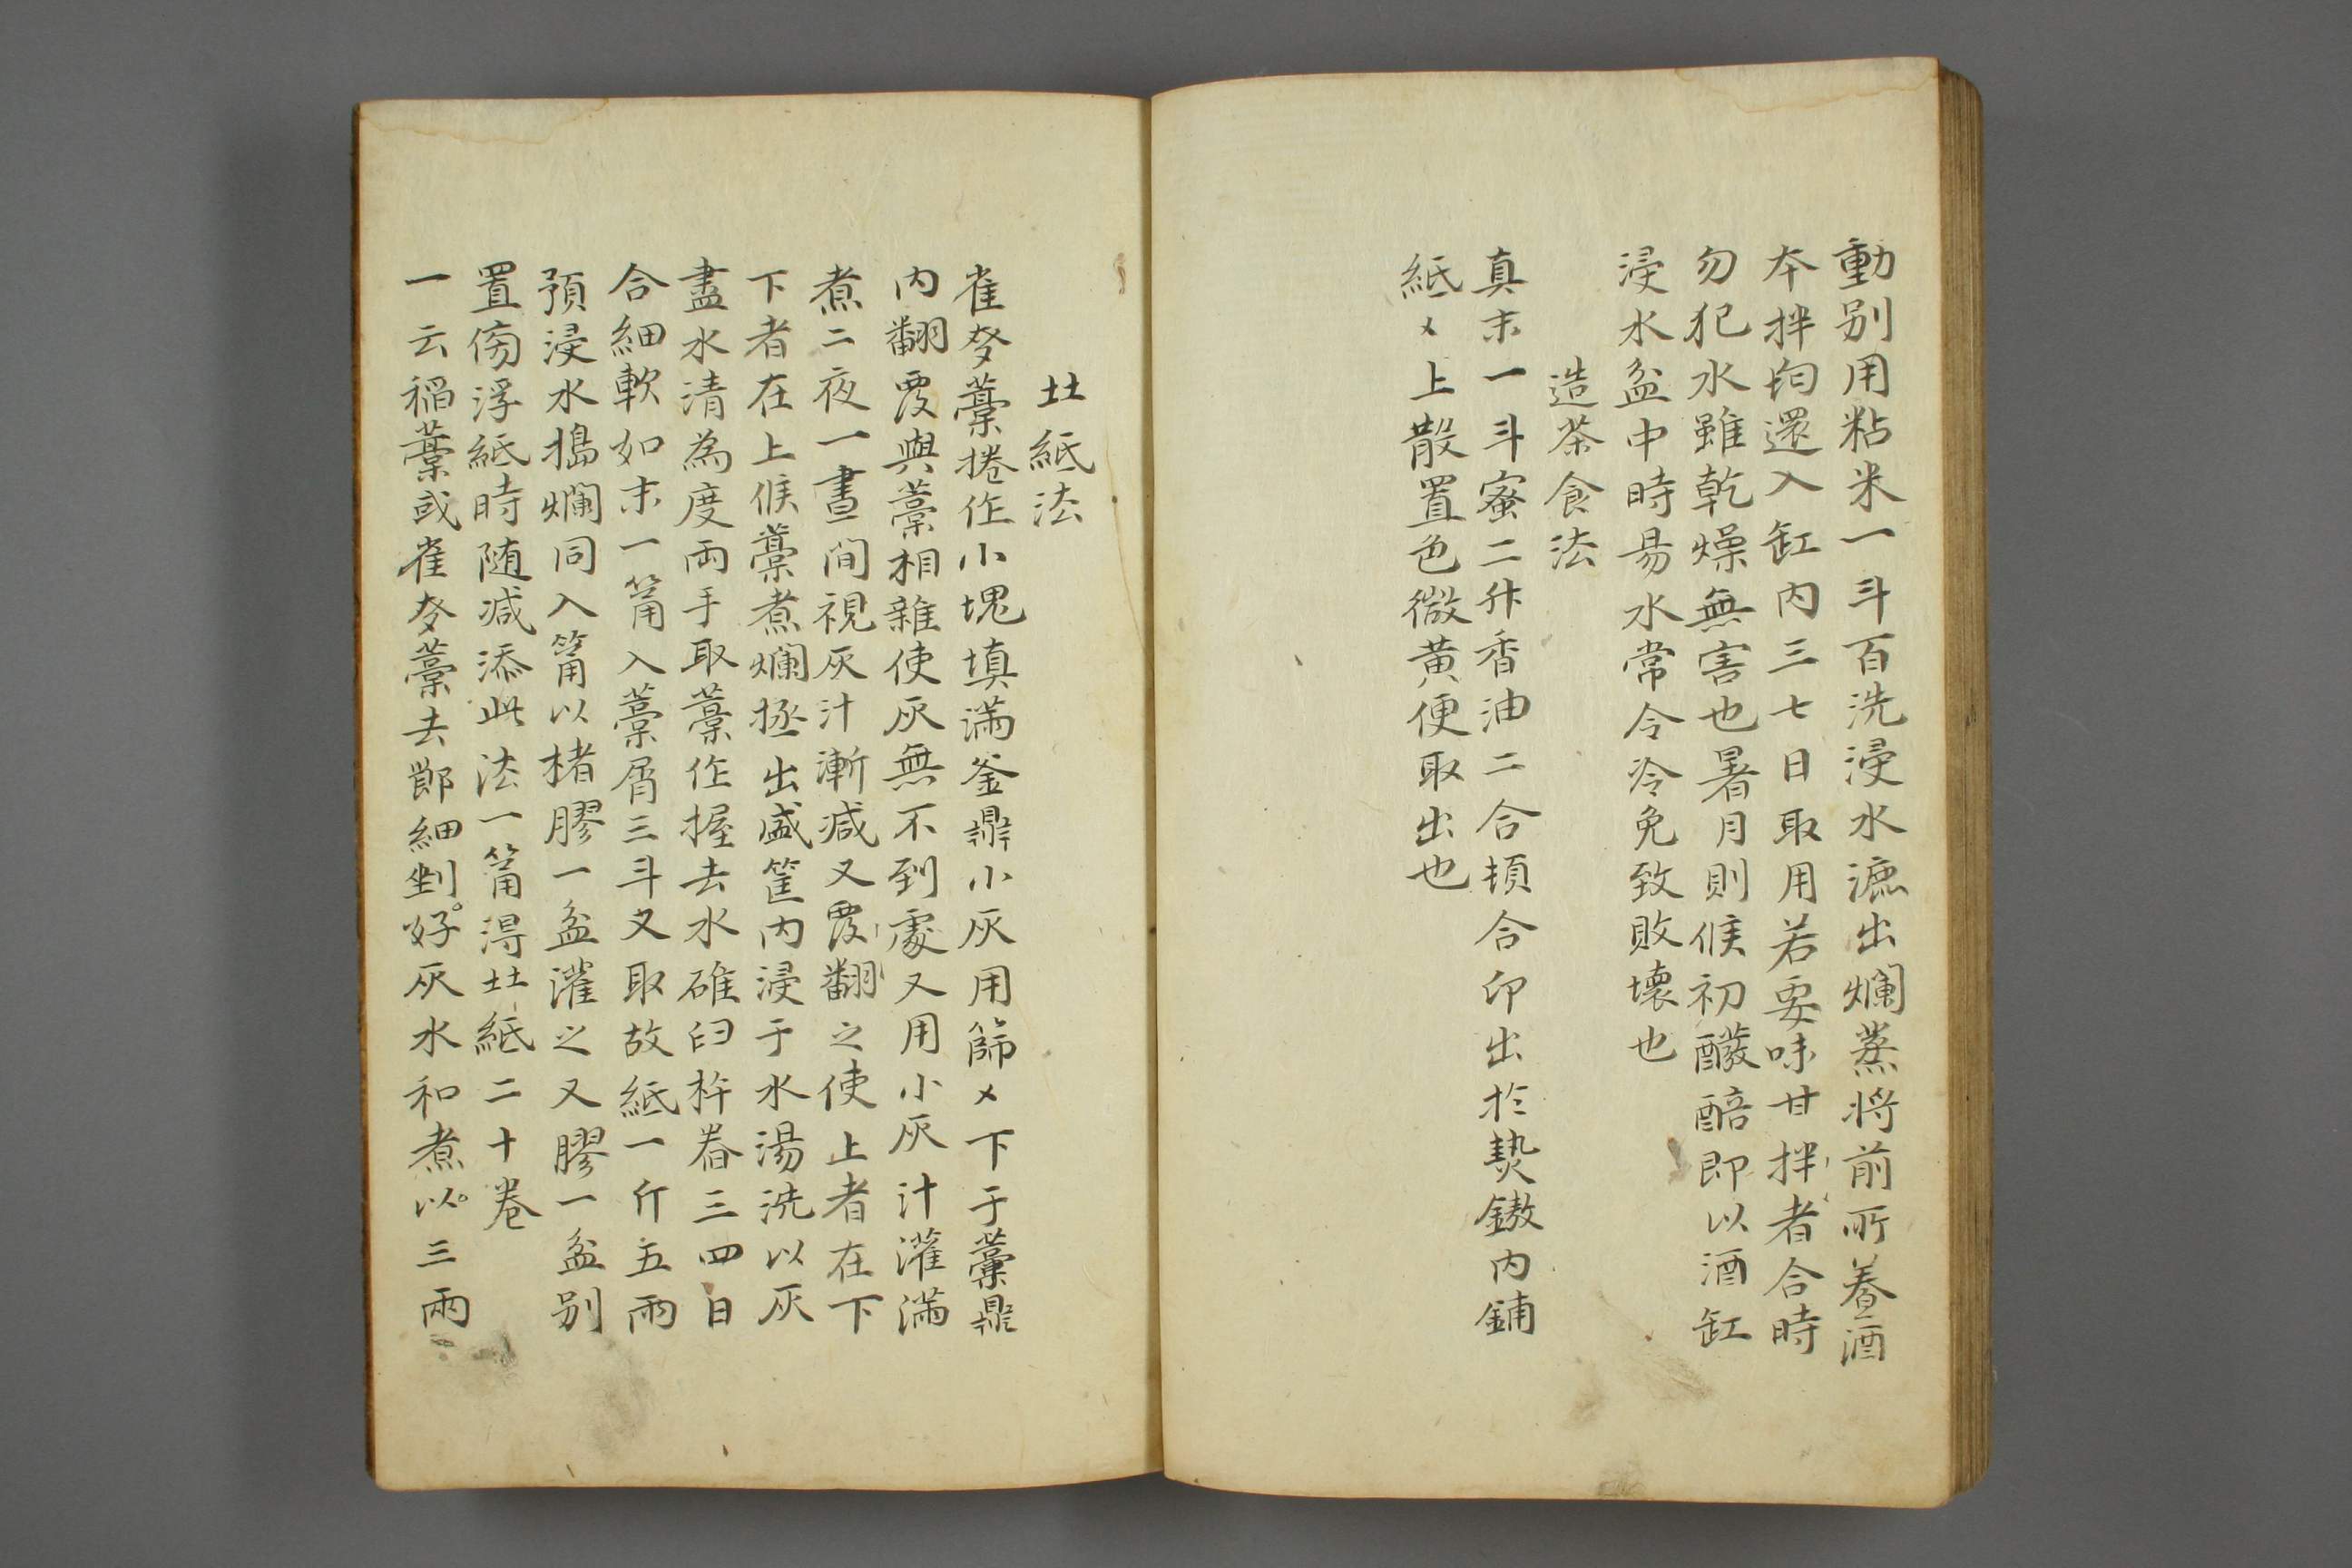 動別用粘米一斗百洗浸水漉出爛蒸將前所養酒
本拌均還入缸内三七日取用若要味甘拌者合時
勿犯水雖乾燥無害也暑月則候初醱醅即以酒缸
浸水盆中時易水常令冷免致敗壞也
造茶食法
真末一斗蜜二升香油二合頓合印出於𤍠鏊内鋪
紙〻上散置色微黄便取出也
𡈽紙法
雀麥藁捲作小塊填滿釜鼎小灰用篩〻下于藁鼎
内翻覆與藁相雜使灰無不到處又用小灰汁灌滿
煮二夜一晝間視灰汁漸减又覆翻之使上者在下
下者在上候藁煮爛拯出盛筐内浸于水湯洗以灰
盡水清為度兩手取藁作握去水碓臼杵舂三四日
合細軟如末一筩入藁屑三斗又取故紙一斤五兩
預浸水搗爛同入筩以楮膠一盆灌之又膠一盆别
置傍浮紙時随减添此法一筩得𡈽紙二十卷
一云稲藁或雀麥藁去節細剉好灰水和煮以三兩